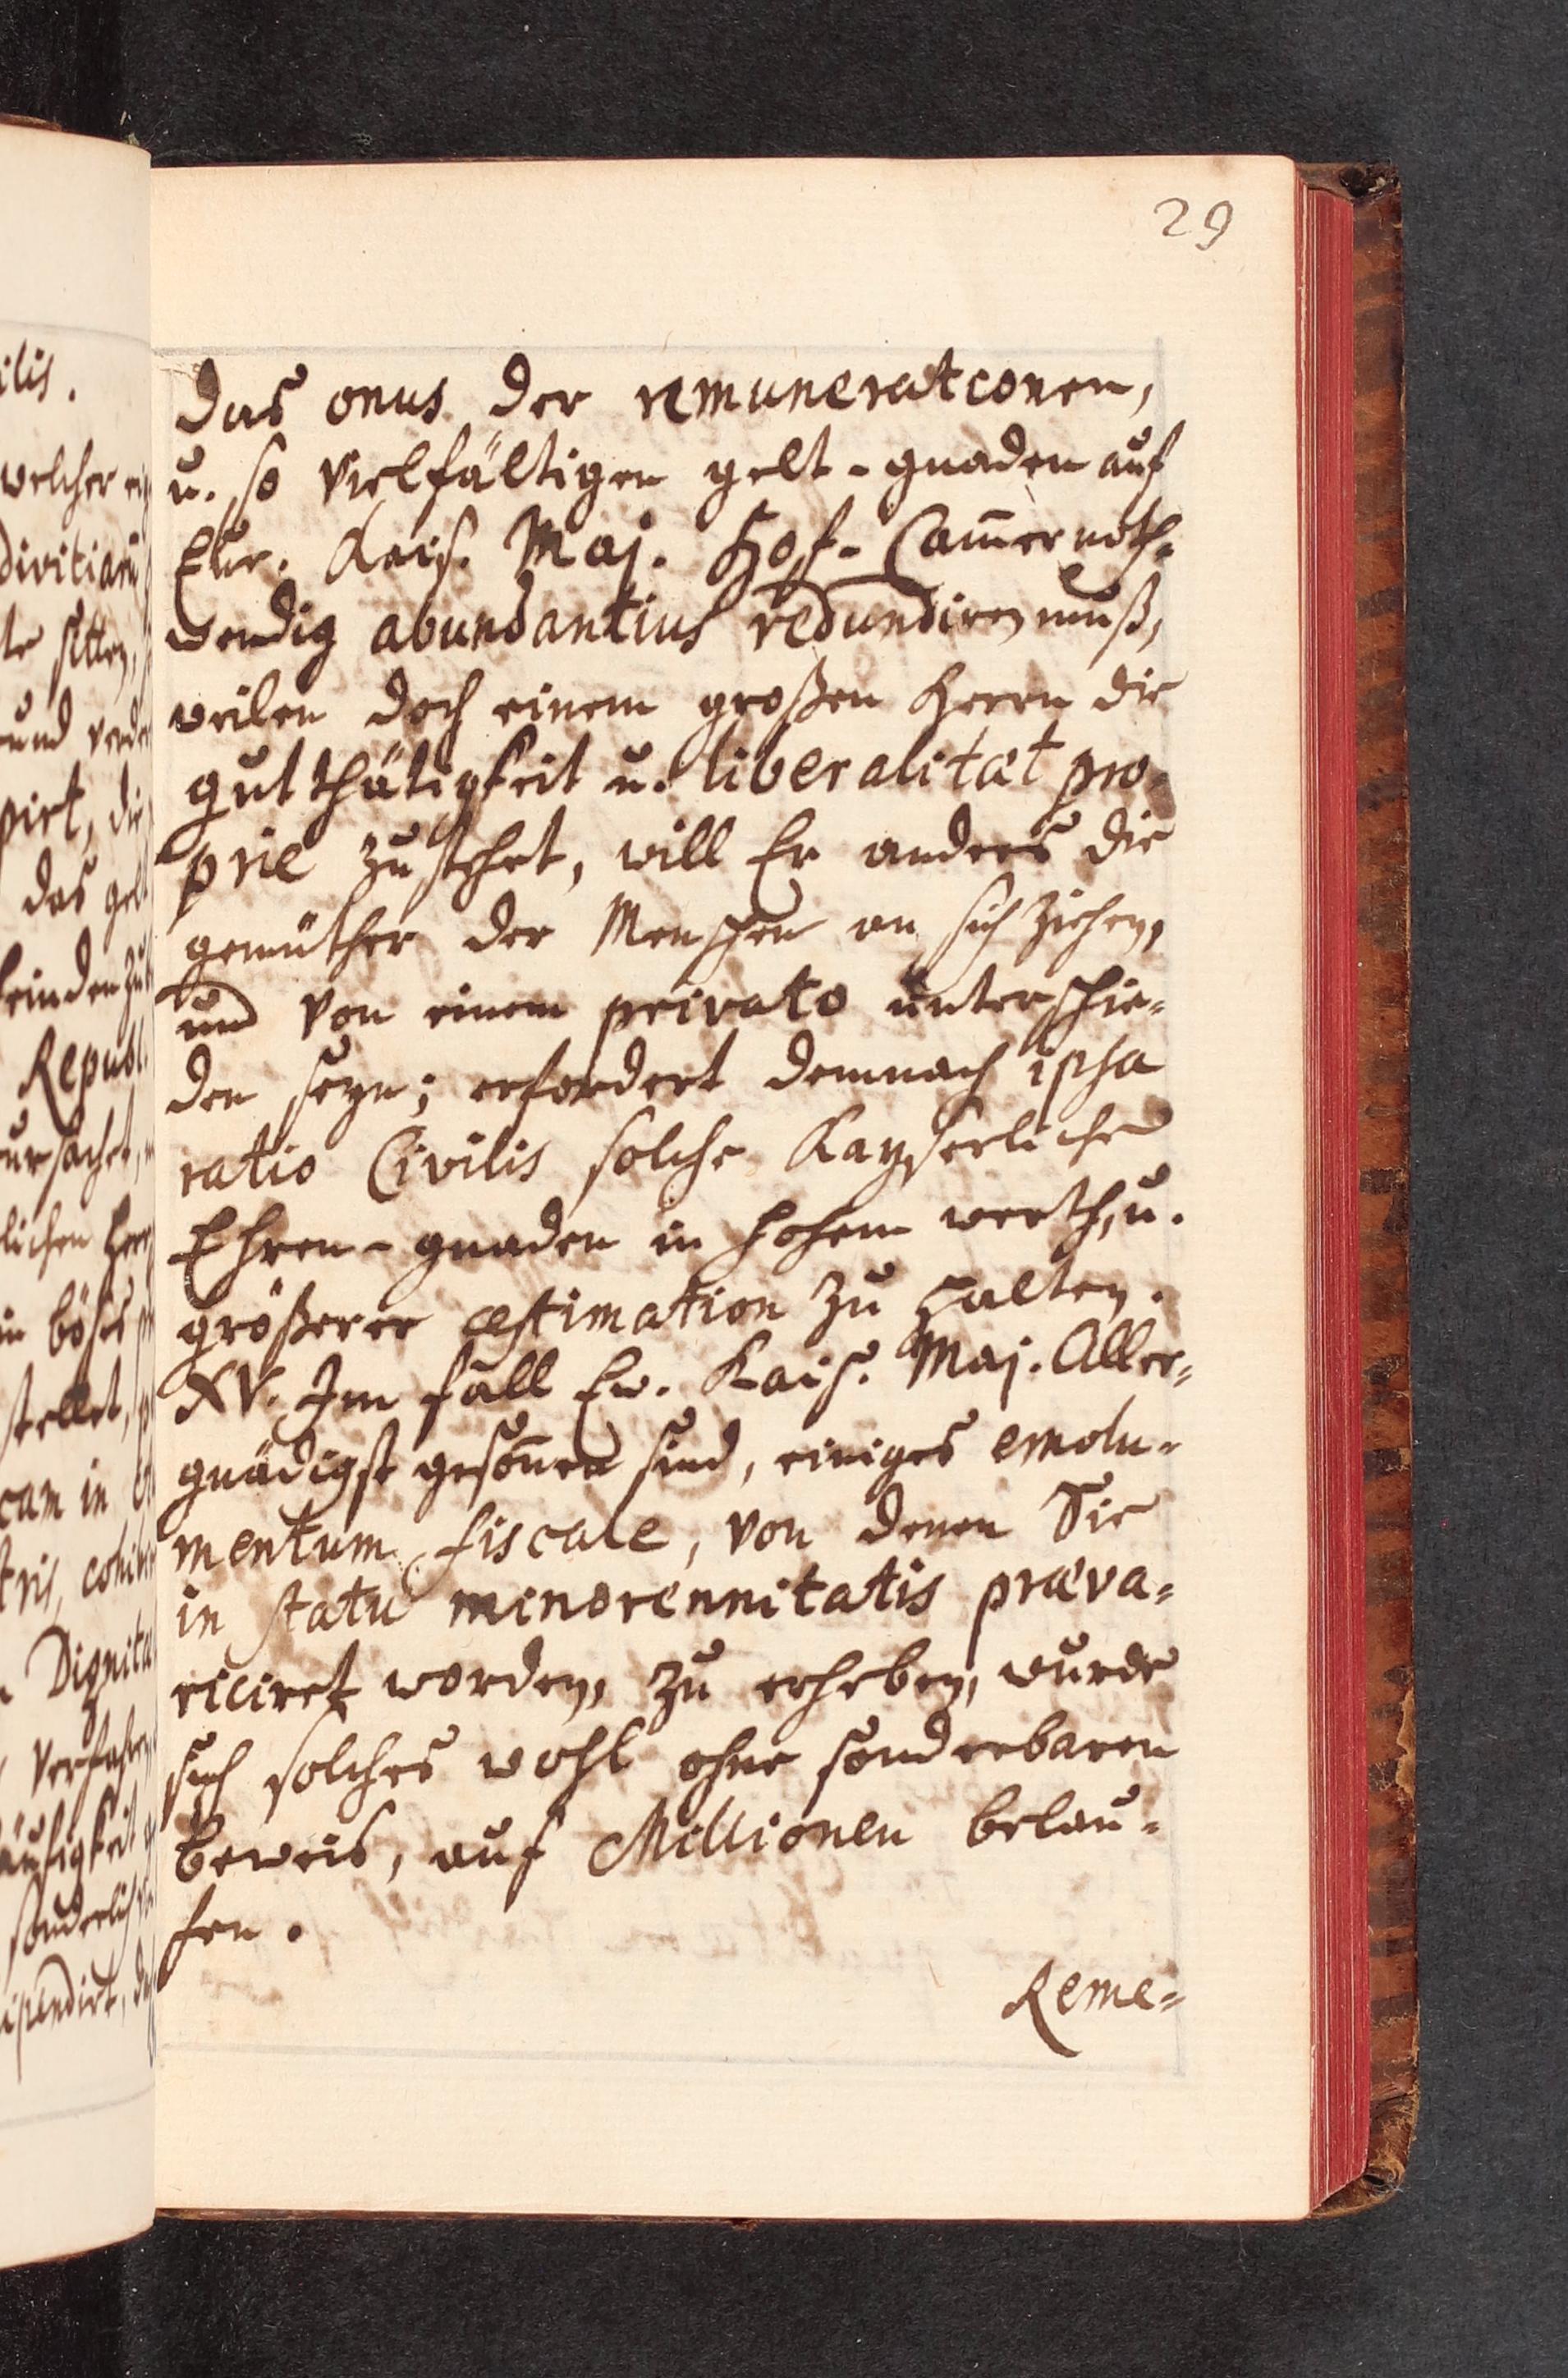 29
das onus der remunerationen,
u. so vielfältigen gelt-gnaden auf
Eur. Kais. Maj. Hof-Cam̄er noth-
wendig abundantius redundiren muß,
weilen doch einem großen Herrn die
gutthätigkeit u. liberalitæt pro-
prie zustehet, will Er anders die
gemüther der Menschen an sich ziehen,
und von einem privato unterschie-
den seyn; erfordert demnach ipsa
ratio Civilis solche Kayserliche
Ehren-gnaden in hohem werth, u.
größerer æstimation zu halten.
XV. Im fall Ew. Kais. Maj. Aller-
gnädigst geson̄en sind, einiges emolu-
mentum fiscale, von denen Sie
in statu minorennitatis præva-
riciret worden, zu erheben, wurde
sich solches wohl ohne sonderbaren
beweis, auf Millionen belau-
fen.
Reme-